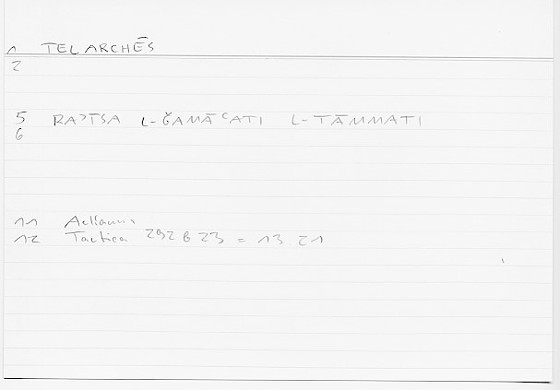 1 TELARCHĒS
2
5 RAʾĪSA L-ǦAMĀʿATI L-TĀMMATI
6
11 Aelianus
12 Tactica 292 B 23 = 13 21